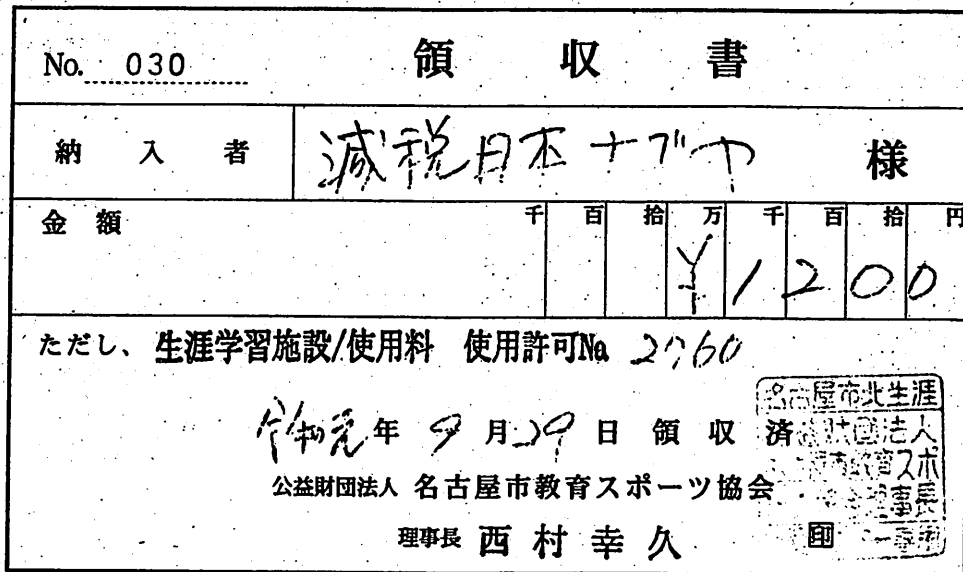 No. 030 領収書
納入者 減税日本ナゴヤ 様
金額 千 百 拾 万 千 百 拾 円
¥1200
ただし、生涯学習施設/使用料 使用許可No. 2760
令和元年 9月29日領収済
公益財団法人 名古屋市教育スポーツ協会
理事長 西村幸久 印
名古屋市北生涯
財団法人
スポ
理事長